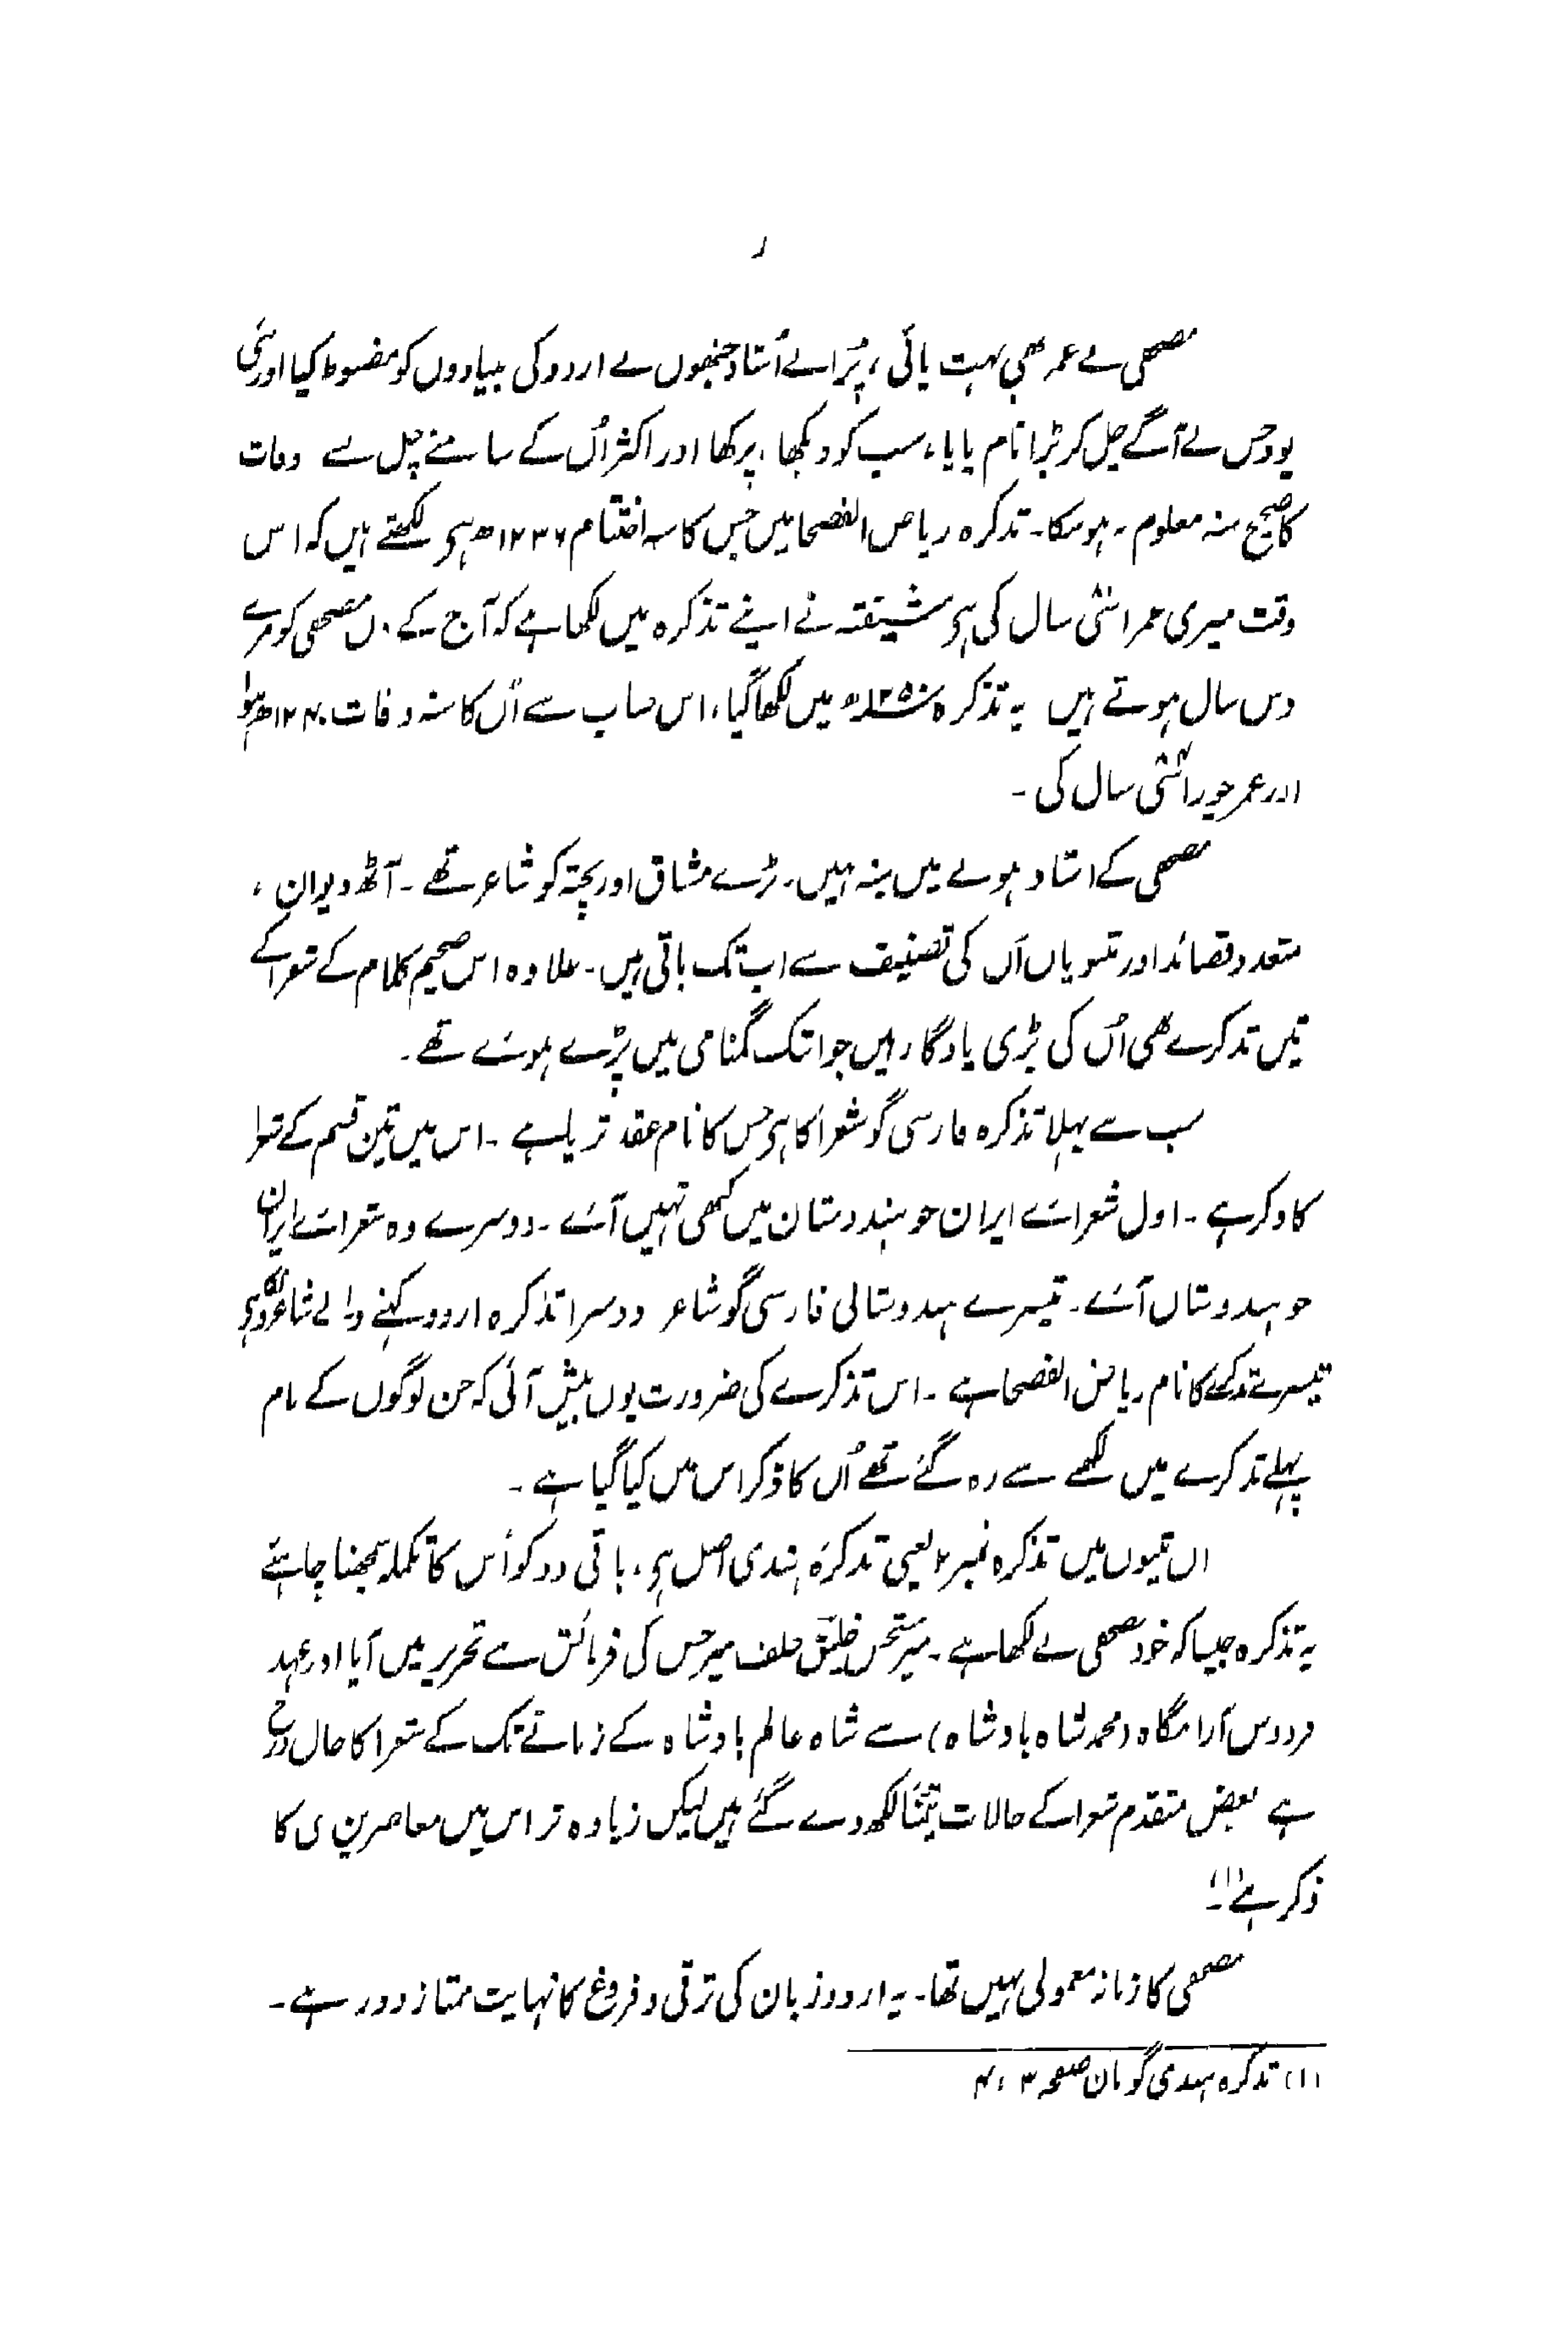 ر
مصحفی نے عمر بھی بہت پائی، پُرانے اُستاد جنھوں نے اردو کی بنیادوں کو مضبوط کیا اور نئی
پود جس نے آگے چل کر بڑا نام پایا، سب کو دیکھا، پرکھا اور اکثر اُن کے سامنے چل بسے وفات
کا صحیح سنہ معلوم نہ ہو سکا۔ تذکرہ ریاض الفصحا میں جس کا سنہ اختتام ۱۲۳۶ھ ہی لکھتے ہیں کہ اس
وقت میری عمر اسّی سال کی ہی شیفتہ نے اپنے تذکرہ میں لکھا ہے کہ آج کے دن مصحفی کو مرے
دس سال ہوتے ہیں یہ تذکرہ ۱۲۵۰ھ میں لکھا گیا، اس حساب سے اُن کا سنہ وفات ۱۲۴۰ھ ہوا
اور عمر چوراسّی سال کی۔
مصحفی کے استاد ہونے میں شبہ نہیں۔ بڑے مشاق اور پختہ گو شاعر تھے۔ آٹھ دیوان،
متعدد قصائد اور مثنویاں اُن کی تصنیف سے اب تک باقی ہیں۔ علاوہ اس ضخیم کلام کے شعرا کے
تین تذکرے بھی اُن کی بڑی یادگار ہیں جو اتبک گمنامی میں پڑے ہوئے تھے۔
سب سے پہلا تذکرہ فارسی گو شعرا کا ہی جس کا نام عقد ثریا ہے۔ اس میں تین قسم کے شعرا
کا ذکر ہے۔ اول شعرائے ایران جو ہندوستان میں کبھی نہیں آئے۔ دوسرے وہ شعرائے ایران
جو ہندوستان آئے۔ تیسرے ہندوستانی فارسی گو شاعر دوسرا تذکرہ اردو کہنے والے شاعروں کا ہی
تیسرے تذکرے کا نام ریاض الفصحا ہے۔ اس تذکرے کی ضرورت یوں پیش آئی کہ جن لوگوں کے نام
پہلے تذکرے میں لکھے سے رہ گئے تھے اُن کا ذکر اس میں کیا گیا ہے۔
ان تینوں میں تذکرہ نمبر ۲ یعنی تذکرۂ ہندی اصل ہی، باقی دو کو اُس کا تکملہ سمجھنا چاہئے
یہ تذکرہ جیسا کہ خود مصحفی نے لکھا ہے۔ میر مستحسن خلیقؔ خلف میر حسن کی فرمائش سے تحریر میں آیا اور عہد
فردوس آرامگاہ (محمد شاہ بادشاہ) سے شاہ عالم بادشاہ کے زمانے تک کے شعرا کا حال درج
ہے بعض متقدم شعرا کے حالات تیمّنًا لکھ دے گئے ہیں لیکن زیادہ تر اس میں معاصرین ہی کا
ذکر ہے (۱)۔
مصحفی کا زمانہ معمولی نہیں تھا۔ یہ اردو زبان کی ترقی و فروغ کا نہایت ممتاز دور ہے۔
(۱) تذکرہ ہندی گویان صفحہ ۳، ۴